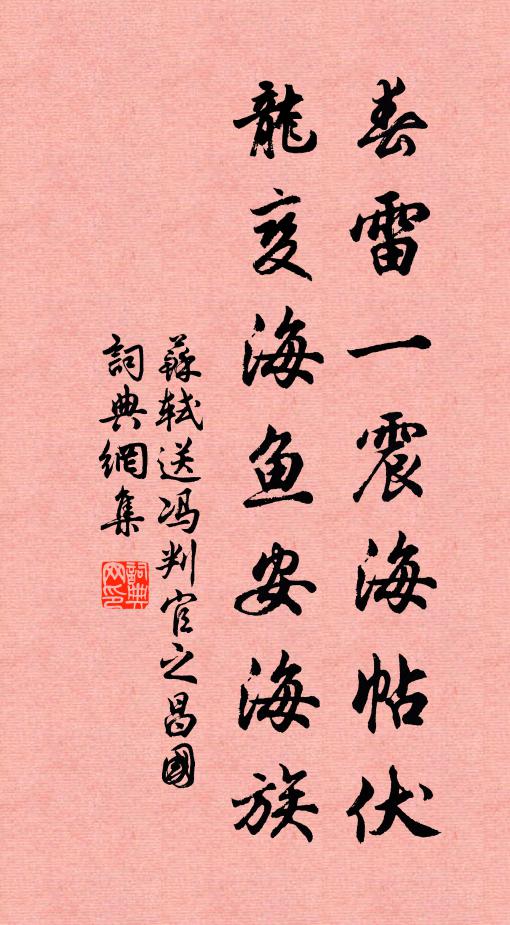 春雷一震海帖伏
龍变海鱼安海族
蘇轼送冯判官之昌國
詞典網集
詞典网印